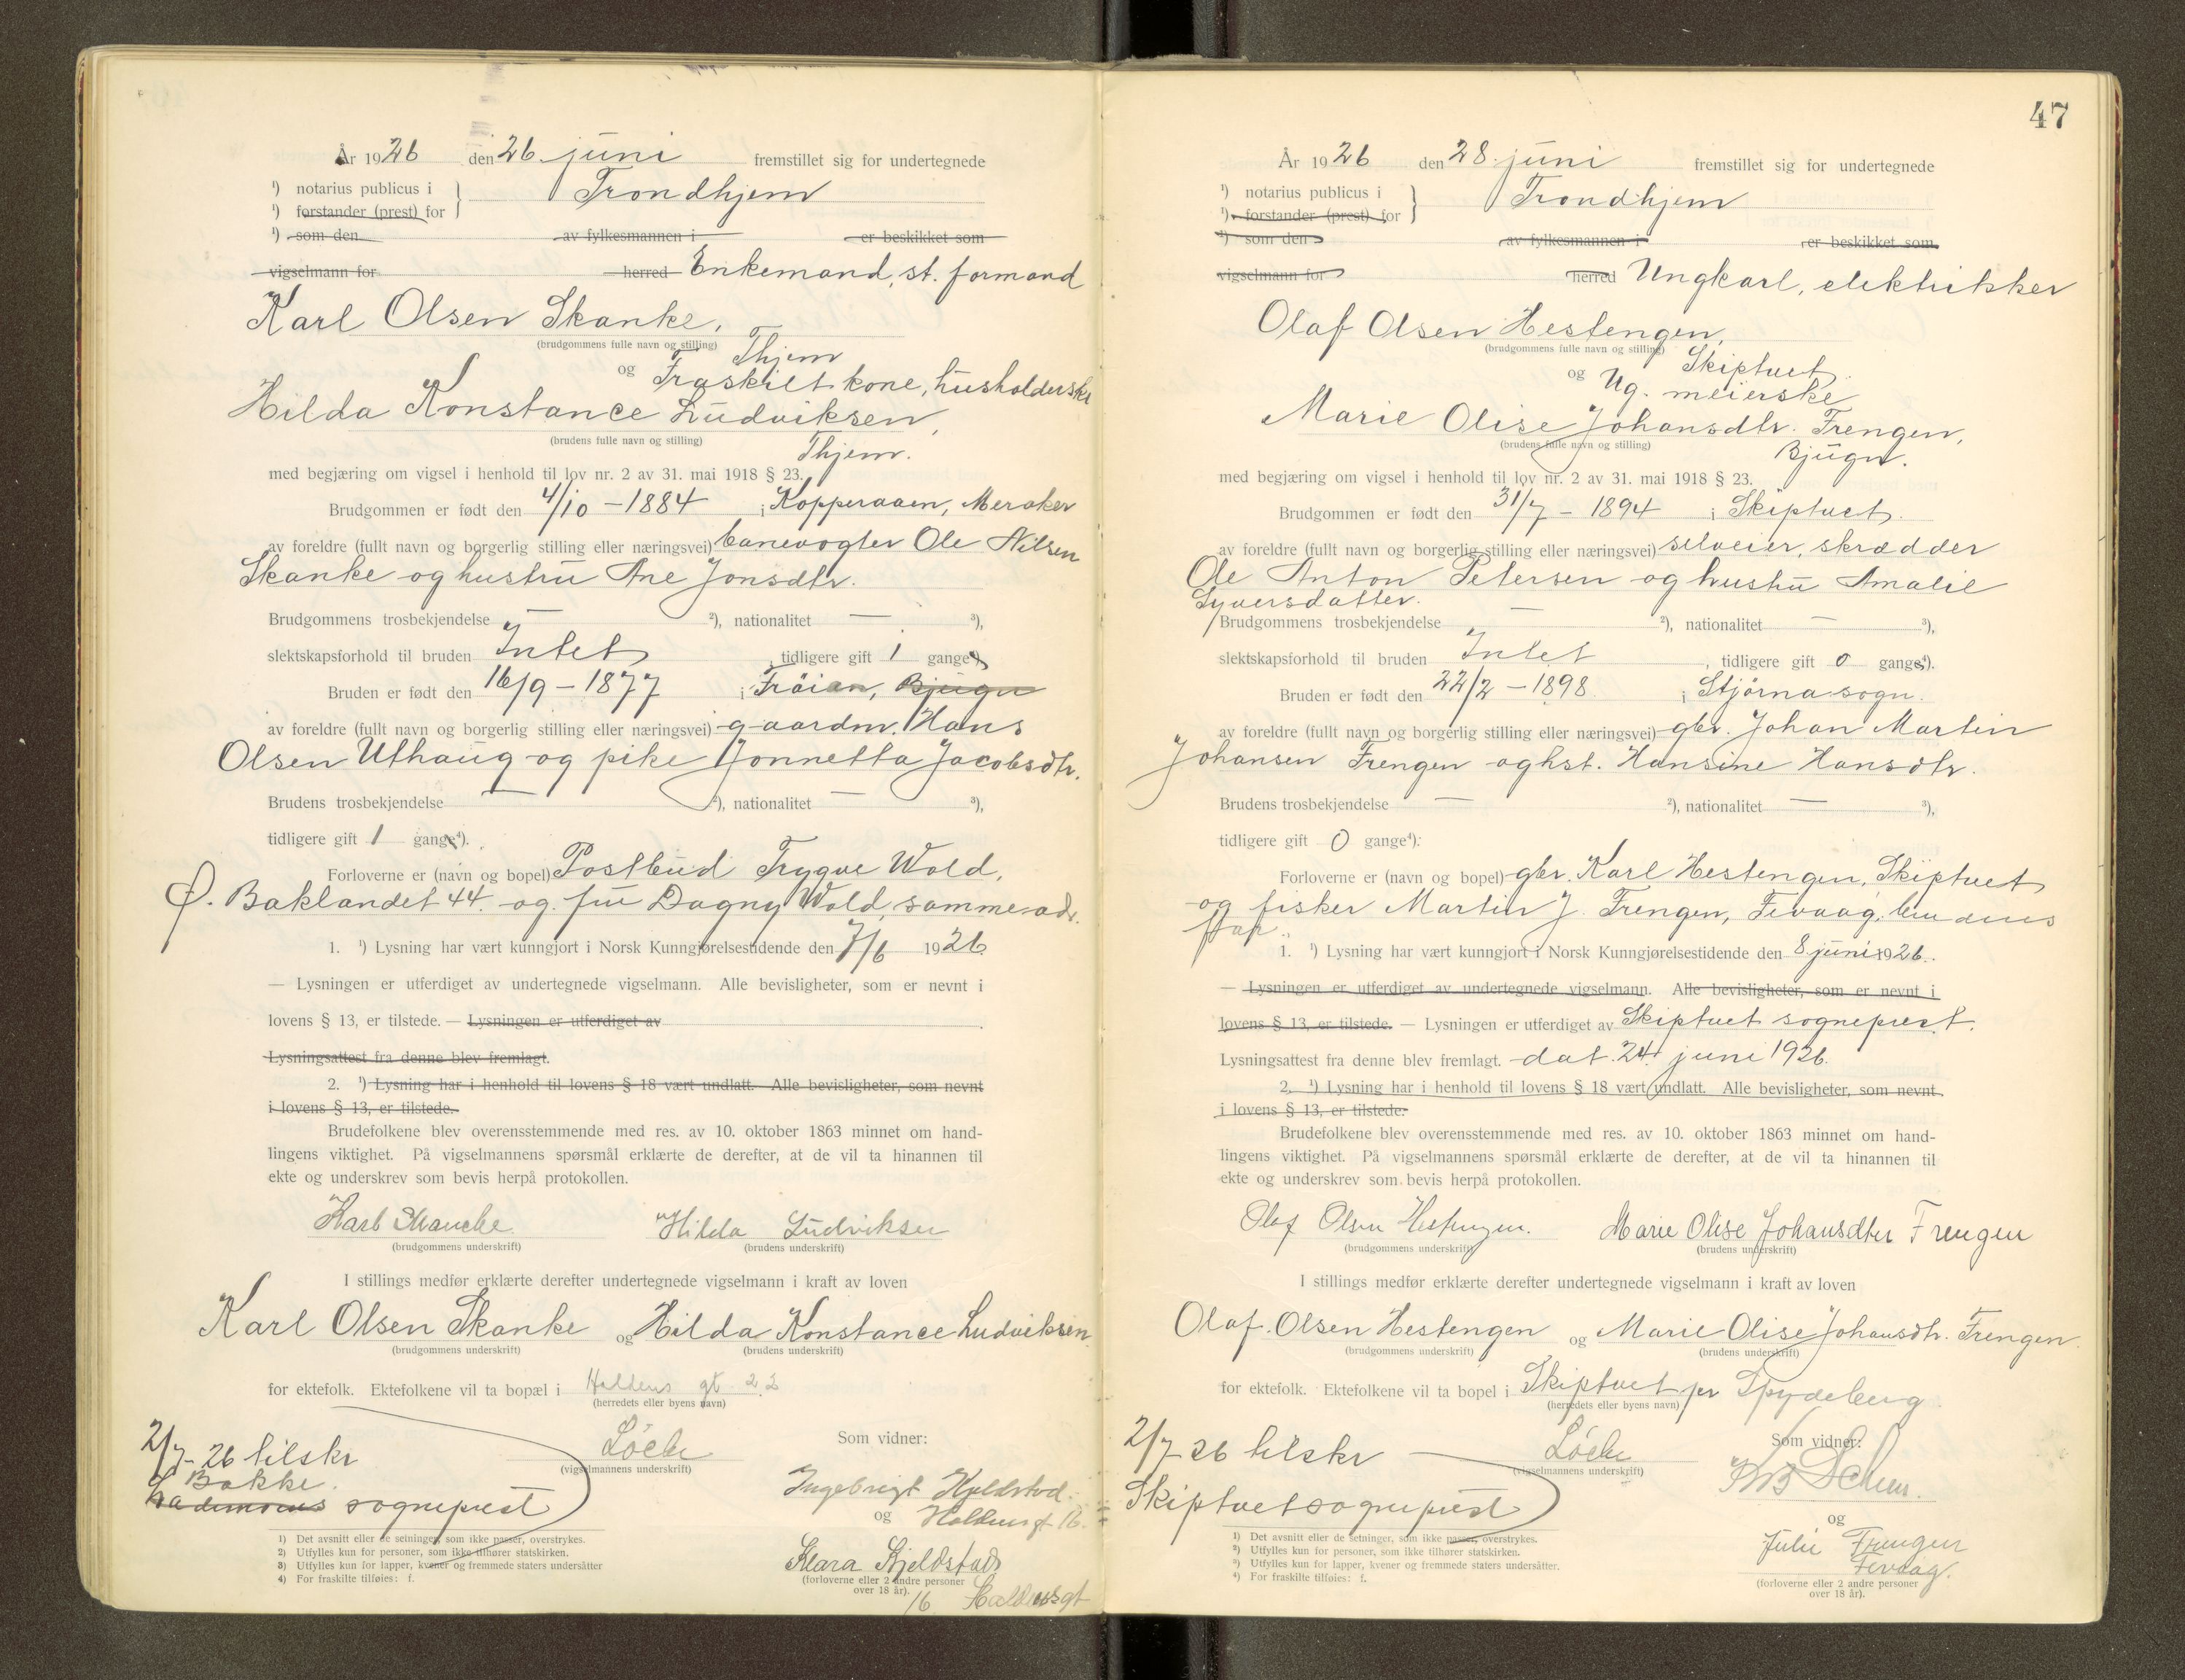 År 1926 den 26 juni fremstillet sig for undertegnede
¹) notarius publicus i } Trondhjem
¹) forstander (prest) for
¹) som den av fylkesmannen i er beskikket som
vigselmann for herred Enkemand, st. formand
Karl Olsen Skanke,
(brudgommens fulle navn og stilling) Thjem
og Fraskilt kone, husholderske
Hilda Konstance Ludviksen,
(brudens fulle navn og stilling) Thjem.
med begjæring om vigsel i henhold til lov nr. 2 av 31. mai 1918 § 23.
Brudgommen er født den 4/10 - 1884 i Kopperaaen, Meraker
av foreldre (fullt navn og borgerlig stilling eller næringsvei) banevogter Ole Nilsen
Skanke og hustru Ane Jonsdtr.
Brudgommens trosbekjendelse — ²), nationalitet — ³),
slektskapsforhold til bruden Intet, tidligere gift 1 gange⁴).
Bruden er født den 16/9 - 1877 i Fröien, Bjugn
av foreldre (fullt navn og borgerlig stilling eller næringsvei) gaardm. Hans
Olsen Uthaug og pike Jonnetta Jacobsdtr.
Brudens trosbekjendelse — ²), nationalitet — ³),
tidligere gift 1 gange⁴).
Forloverne er (navn og bopel) Postbud Trygve Wold,
Ø. Baklandet 44. og fru Dagny Wold, samme adr.
1. ¹) Lysning har vært kunngjort i Norsk Kunngjørelsestidende den 7/6 1926
— Lysningen er utferdiget av undertegnede vigselmann. Alle bevisligheter, som er nevnt i
lovens § 13, er tilstede. — Lysningen er utferdiget av
Lysningsattest fra denne blev fremlagt.
2. ¹) Lysning har i henhold til lovens § 18 vært undlatt. Alle bevisligheter, som nevnt
i lovens § 13, er tilstede.
Brudefolkene blev overensstemmende med res. av 10. oktober 1863 minnet om hand-
lingens viktighet. På vigselmannens spørsmål erklærte de derefter, at de vil ta hinannen til
ekte og underskrev som bevis herpå protokollen.
Karl Skancke Hilda Ludviksen
(brudgommens underskrift) (brudens underskrift)
I stillings medfør erklærte derefter undertegnede vigselmann i kraft av loven
Karl Olsen Skanke og Hilda Konstance Ludviksen
(brudgommens underskrift) (brudens underskrift)
for ektefolk. Ektefolkene vil ta bopæl i Haldens gt 22
(herredets eller byens navn)
2/7 - 26 tilskr
Bakke
sogneprest
(vigselmannens underskrift)
Som vidner:
Ingebrigt Kjeldstad
og Haldensgt 16.
Klara Kjeldstad
(forloverne eller 2 andre personer
over 18 år).
16 Haldensgt
1) Det avsnitt eller de setninger, som ikke passer, overstrykes.
2) Utfylles kun for personer, som ikke tilhører statskirken.
3) Utfylles kun for lapper, kvener og fremmede staters undersåtter
4) For fraskilte tilføies: f.
47
År 1926 den 28. juni fremstillet sig for undertegnede
¹) notarius publicus i } Trondhjem
¹) forstander (prest) for
¹) som den av fylkesmannen i er beskikket som
vigselmann for herred Ungkarl, elektriker
Olaf Olsen Hestengen,
(brudgommens fulle navn og stilling) Skiptvet
og Ug. meierske
Marie Olise Johansdtr. Frengen,
(brudens fulle navn og stilling) Bjugn.
med begjæring om vigsel i henhold til lov nr. 2 av 31. mai 1918 § 23.
Brudgommen er født den 31/7 - 1894 i Skiptvet
av foreldre (fullt navn og borgerlig stilling eller næringsvei) selveier, skrædder
Ole Anton Petersen og hustru Amalie
Syversdatter.
Brudgommens trosbekjendelse — ²), nationalitet — ³),
slektskapsforhold til bruden Intet, tidligere gift 0 gange⁴).
Bruden er født den 22/2 - 1898 i Stjørna sogn.
av foreldre (fullt navn og borgerlig stilling eller næringsvei) gbr. Johan Martin
Johansen Frengen og hst. Hansine Hansdtr.
Brudens trosbekjendelse — ²), nationalitet — ³),
tidligere gift 0 gange⁴):
Forloverne er (navn og bopel) gbr. Karl Hestengen, Skiptvet
og fisker Martin J. Frengen, Fevaag, brudens
far.
1. ¹) Lysning har vært kunngjort i Norsk Kunngjørelsestidende den 8 juni 1926.
— Lysningen er utferdiget av undertegnede vigselmann. Alle bevisligheter, som er nevnt i
lovens § 13, er tilstede. — Lysningen er utferdiget av Skiptvet sogneprest.
Lysningsattest fra denne blev fremlagt. dat. 24. juni 1926.
2. ¹) Lysning har i henhold til lovens § 18 vært undlatt. Alle bevisligheter, som nevnt
i lovens § 13, er tilstede.
Brudefolkene blev overensstemmende med res. av 10. oktober 1863 minnet om hand-
lingens viktighet. På vigselmannens spørsmål erklærte de derefter, at de vil ta hinannen til
ekte og underskrev som bevis herpå protokollen.
Olaf Olsen Hestengen. Marie Olise Johansdtr Frengen
(brudgommens underskrift) (brudens underskrift)
I stillings medfør erklærte derefter undertegnede vigselmann i kraft av loven
Olaf Olsen Hestengen og Marie Olise Johansdtr. Frengen
(brudgommens underskrift) (brudens underskrift)
for ektefolk. Ektefolkene vil ta bopel i Skiptvet pr Spydeberg
(herredets eller byens navn)
2/7 26 tilskr
Skiptvet sogneprest
(vigselmannens underskrift)
Som vidner:
og
Julie Frengen
Fevaag.
(forloverne eller 2 andre personer
over 18 år).
1) Det avsnitt eller de setninger, som ikke passer, overstrykes.
2) Utfylles kun for personer, som ikke tilhører statskirken.
3) Utfylles kun for lapper, kvener og fremmede staters undersåtter.
4) For fraskilte tilføies: f.